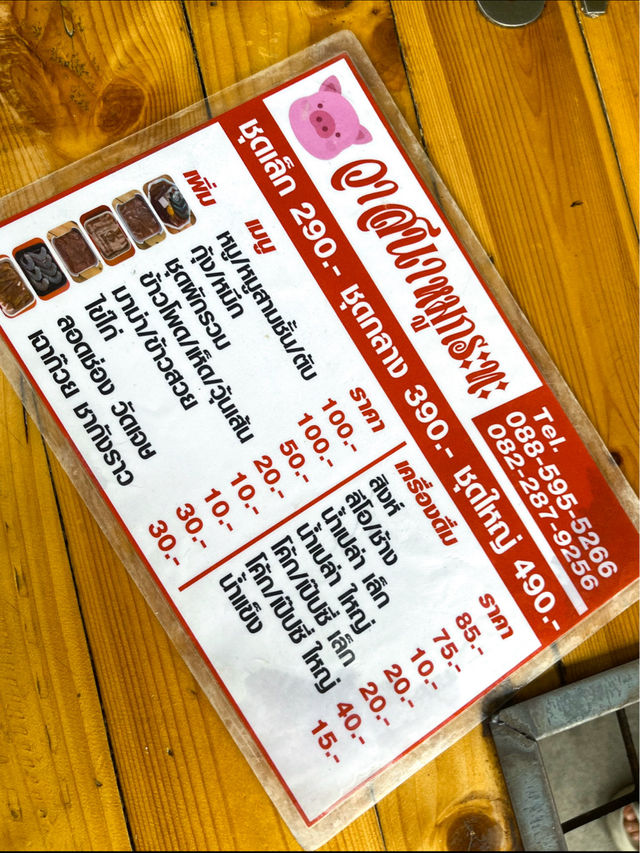 วาสนาหมูกระทะ
Tel.
088-595-5266
082-287-9256
ชุดเล็ก 290.- ชุดกลาง 390.- ชุดใหญ่ 490.-
เพิ่ม เมนู ราคา
หมู/หมูสามชั้น/ตับ 100.-
กุ้ง/หมึก 100.-
ชุดผักรวม 50.-
ข้าวโพด/เห็ด/วุ้นเส้น 20.-
มาม่า/ข้าวสวย 10.-
ไข่ไก่ 10.-
ลอดช่อง วัดเจษ 30.-
เฉาก๊วย ชากังราว 30.-
เครื่องดื่ม ราคา
สิงห์ 85.-
ลีโอ/ช้าง 75.-
น้ำเปล่า เล็ก 10.-
น้ำเปล่า ใหญ่ 20.-
โค๊ก/เป๊ปซี่ เล็ก 20.-
โค๊ก/เป๊ปซี่ ใหญ่ 40.-
น้ำแข็ง 15.-